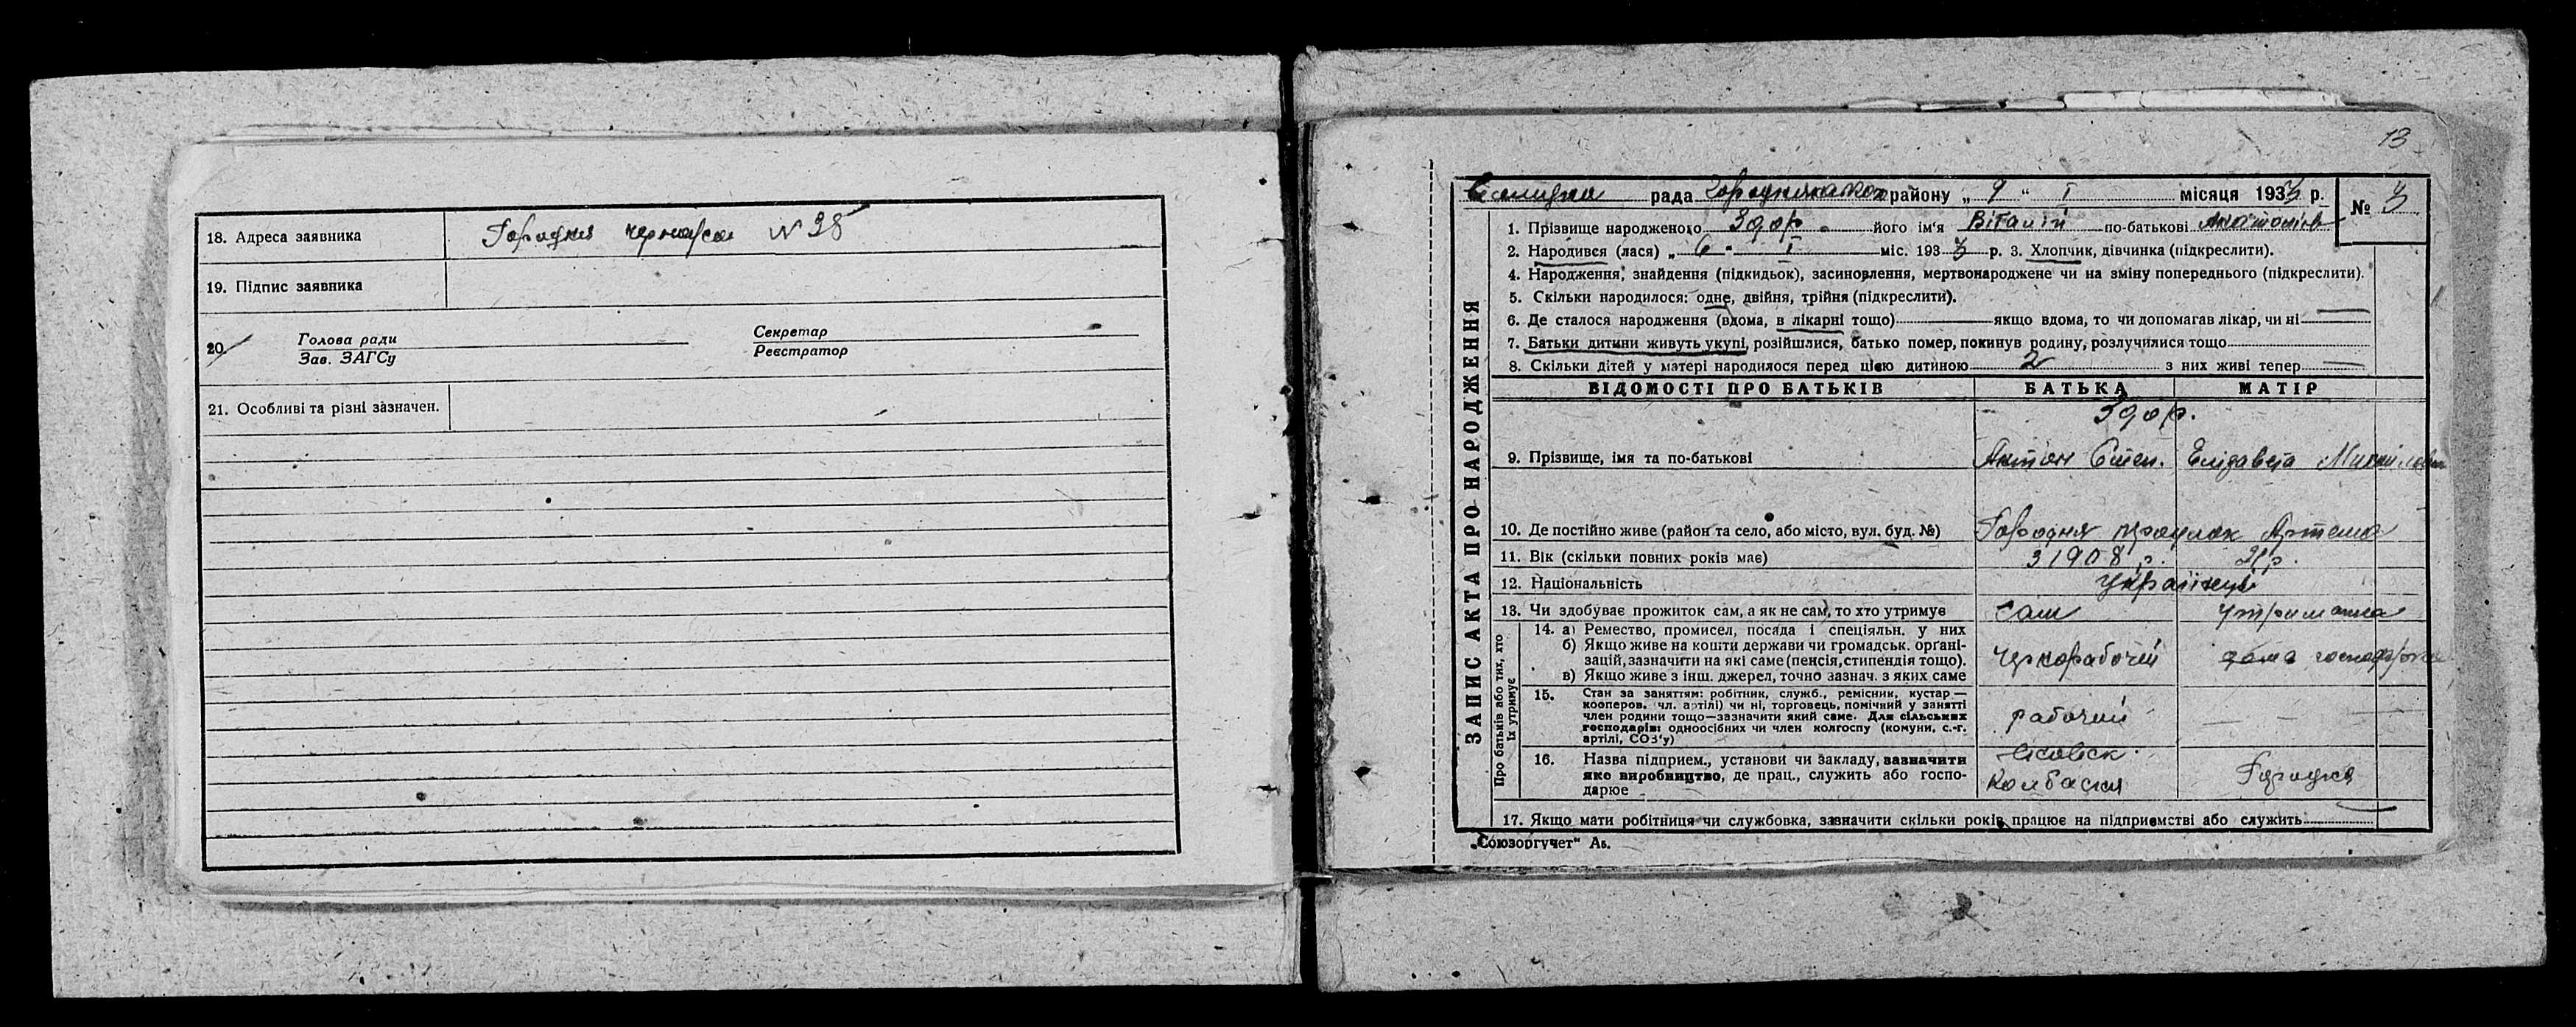 18. Адреса заявника Городня N 38
19. Підпис заявника
20. Голова ради Секретар
Зав. ЗАГСу Реєстратор
21. Особливі та різні зазначен.
13
рада району „ 9 “ I місяця 1933 р. № 3
1. Прізвище народженого Здор його ім'я Віталій по-батькові Антонів
2. Народився (лася) „ 6 " I міс. 193 3 р. 3. Хлопчик, дівчинка (підкреслити).
4. Народження, знайдення (підкидьок), засиновлення, мертвонароджене чи на зміну попереднього (підкреслити).
5. Скільки народилося: одне, двійня, трійня (підкреслити).
6. Де сталося народження (вдома, в лікарні тощо) — якщо вдома, то чи допомагав лікар, чи ні —
7. Батьки дитини живуть укупі, розійшлися, батько помер, покинув родину, розлучилися тощо
8. Скільки дітей у матері народилося перед цією дитиною 2 з них живі тепер —
ЗАПИС АКТА ПРО НАРОДЖЕННЯ
ВІДОМОСТІ ПРО БАТЬКІВ БАТЬКА МАТІР
Здор.
9. Прізвище, імя та по-батькові Антон Степ. Елізавета Михайловна
10. Де постійно живе (район та село, або місто, вул. буд. №) Городня провулок Артема
11. Вік (скільки повних років має) з 1908 р.
12. Національність Українці
13. Чи здобуває прожиток сам, а як не сам, то хто утримує сам утриманка
Про батьків або тих, хто їх утримує
14. а) Ремество, промисел, посада і спеціяльн. у них
б) Якщо живе на кошти держави чи громадськ. органі-
зацій, зазначити на які саме (пенсія, стипендія тощо). Чернорабочий дома господарка
в) Якщо живе з інш. джерел, точно зазнач. з яких саме
15. Стан за заняттям: робітник, служб., ремісник, кустар —
кооперов. чл. артілі) чи ні, торговець, помічний у занятті
член родини тощо—зазначити який саме. Для сільських рабочий — — —
господарів: одноосібних чи член колгоспу (комуни, с.-г.
артілі, СОЗ'у)
16. Назва підприєм., установи чи закладу, зазначити
яко виробництво, де прац., служить або госпо- Колбасня Городня
дарює
17. Якщо мати робітниця чи службовка, зазначити скільки років працює на підприємстві або служить —
„Союзоргучет“ Аб.